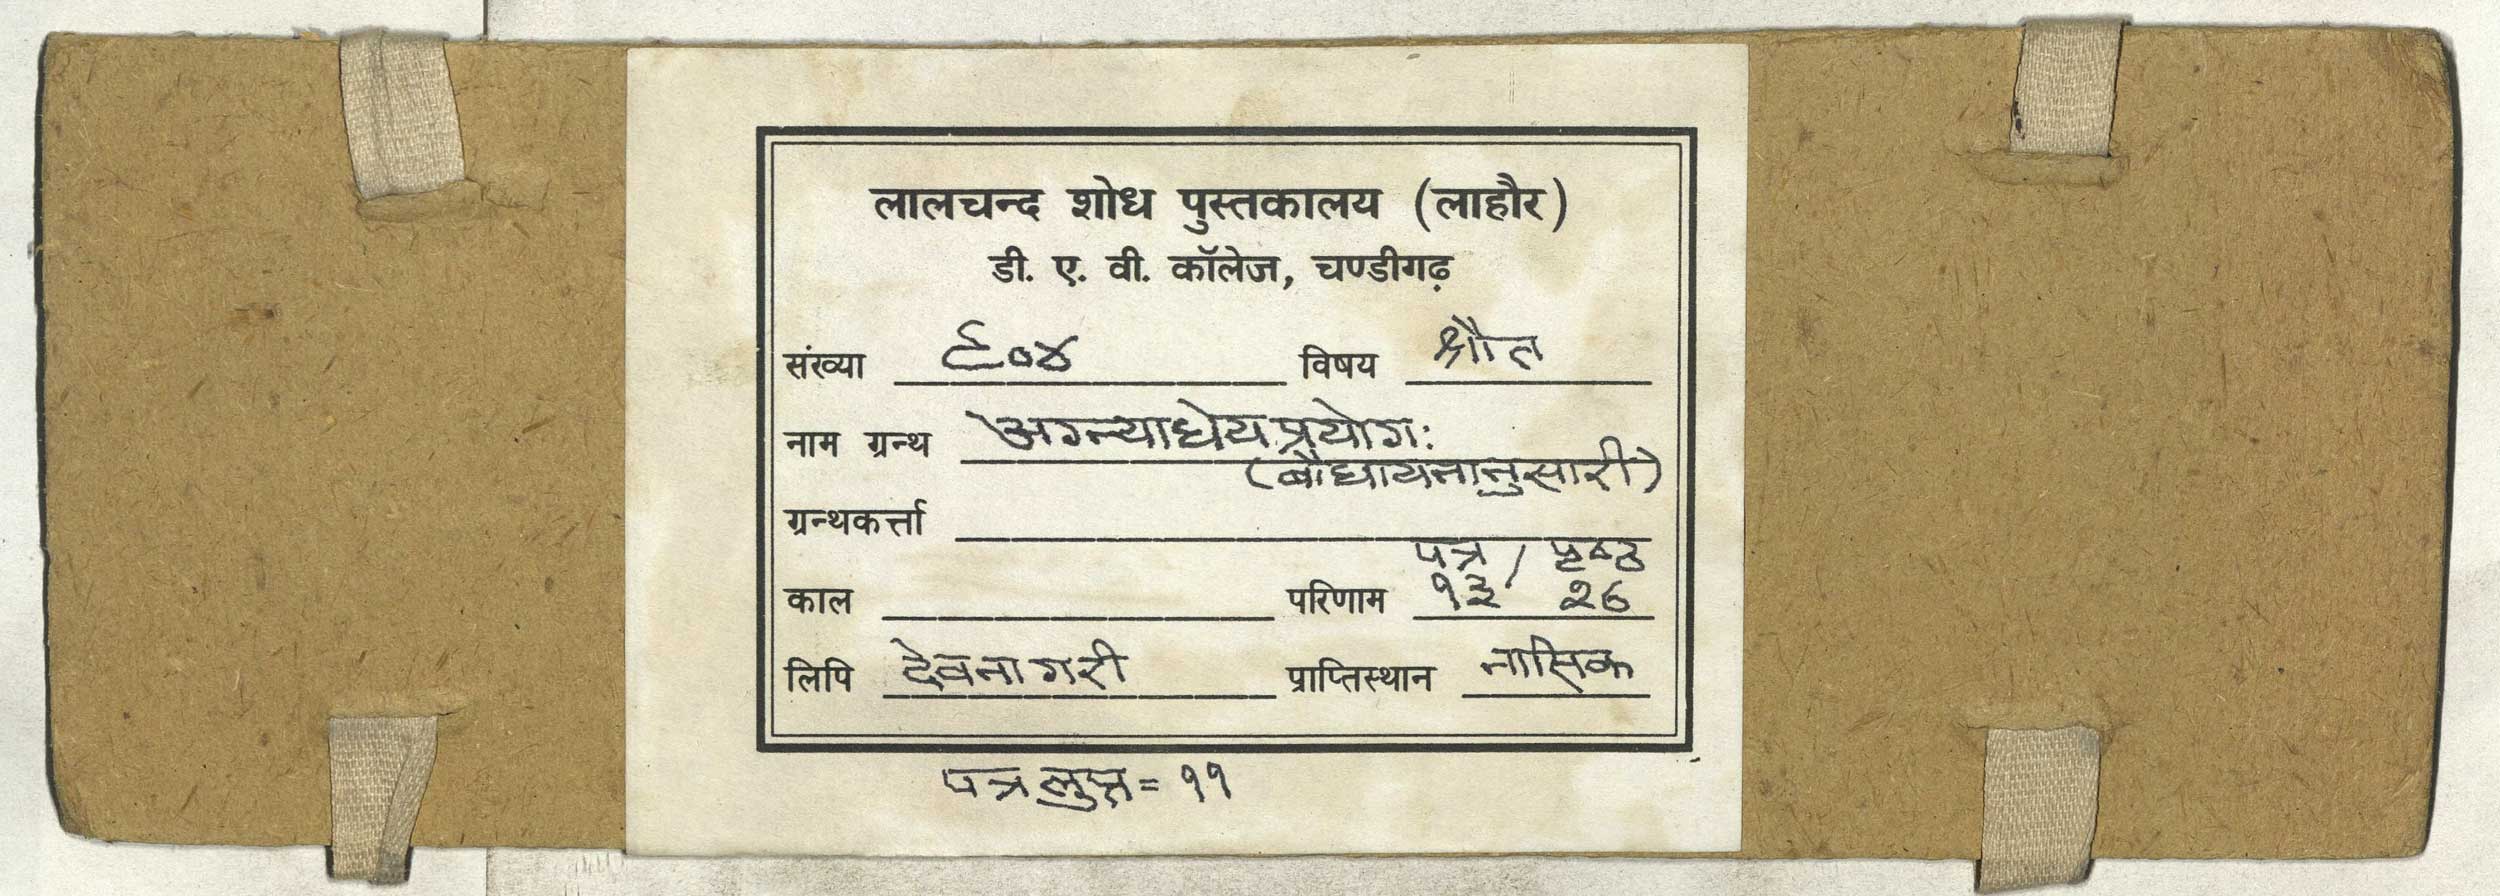 लालचन्द शोध पुस्तकालय (लाहौर)
डी. ए. वी. कॉलेज, चण्डीगढ़
संख्या ६०४ विषय श्रौत
नाम ग्रन्थ अग्न्याधेयप्रयोगः
(बौधायनानुसारी)
ग्रन्थकर्त्ता
पत्र / पृष्ठ
काल परिणाम १३ २६
लिपि देवनागरी प्राप्तिस्थान नासिक
पत्र लुप्त = ११